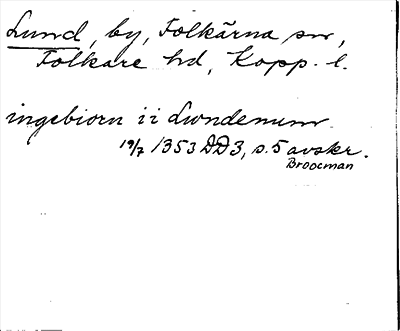 Lund, by, Folkärna sn,
Folkare hd, Kopp. l.
ingebiorn i i Lwndenum
19/7 1353 DD3, s. 5 avskr.
Broocman